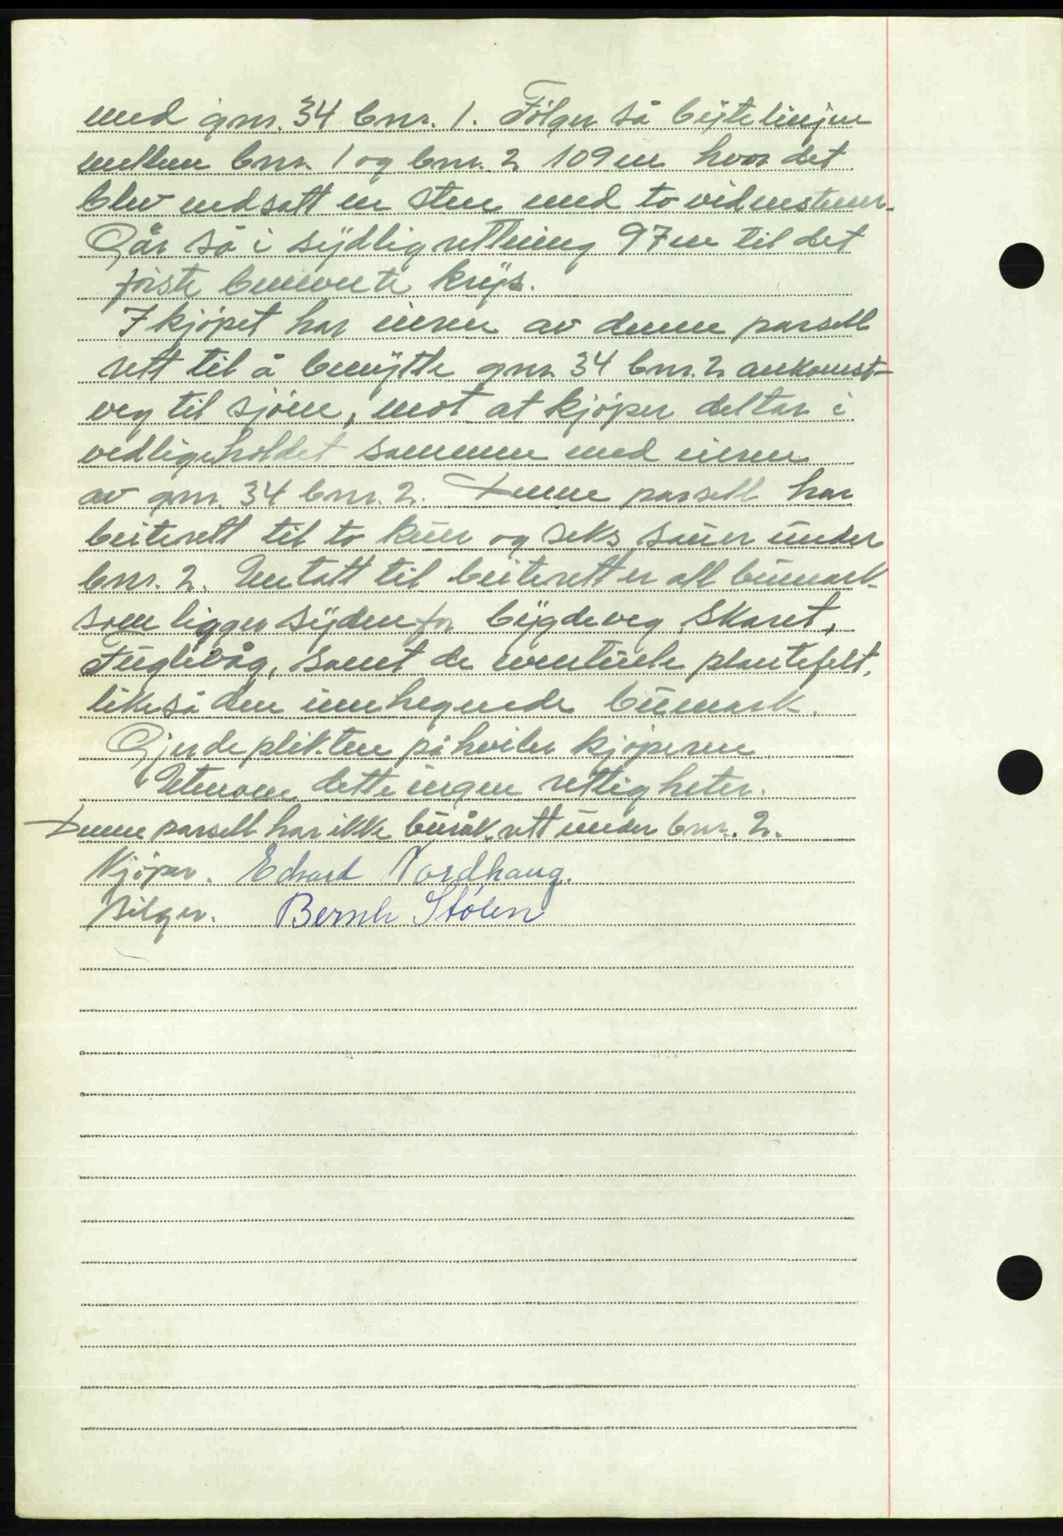 med gnr. 34 bnr. 1. Følger så bytelinjen
mellem bnr. 1 og bnr. 2 109 m hvor det
blev nedsatt en sten med to vidnestener.
Går så i sydlig rettning 97 m til det
første benevnte krys.
I kjøpet har eieren av denne parsell
rett til å benytte gnr. 34 bnr. 2 ankomst-
veg til sjøen, mot at kjøper deltar i
vedligeholdet sammen med eieren
av gnr. 34 bnr. 2. Denne parsell har
beiterett til to kuer og seks sauer under
bnr. 2. Untatt til beiterett er all bumark
som ligger syden for bygdeveg Skaret,
Fuglevåg, samt de eventuele plantefelt,
likeså den innhegnede bumark.
Gjerdeplikten påhviler kjøperen.
Utenom dette ingen rettigheter.
Denne parsell har ikke buråk rett under bnr. 2.
Kjøper. Edvard Nordhaug.
Selger. Bernh Stølen